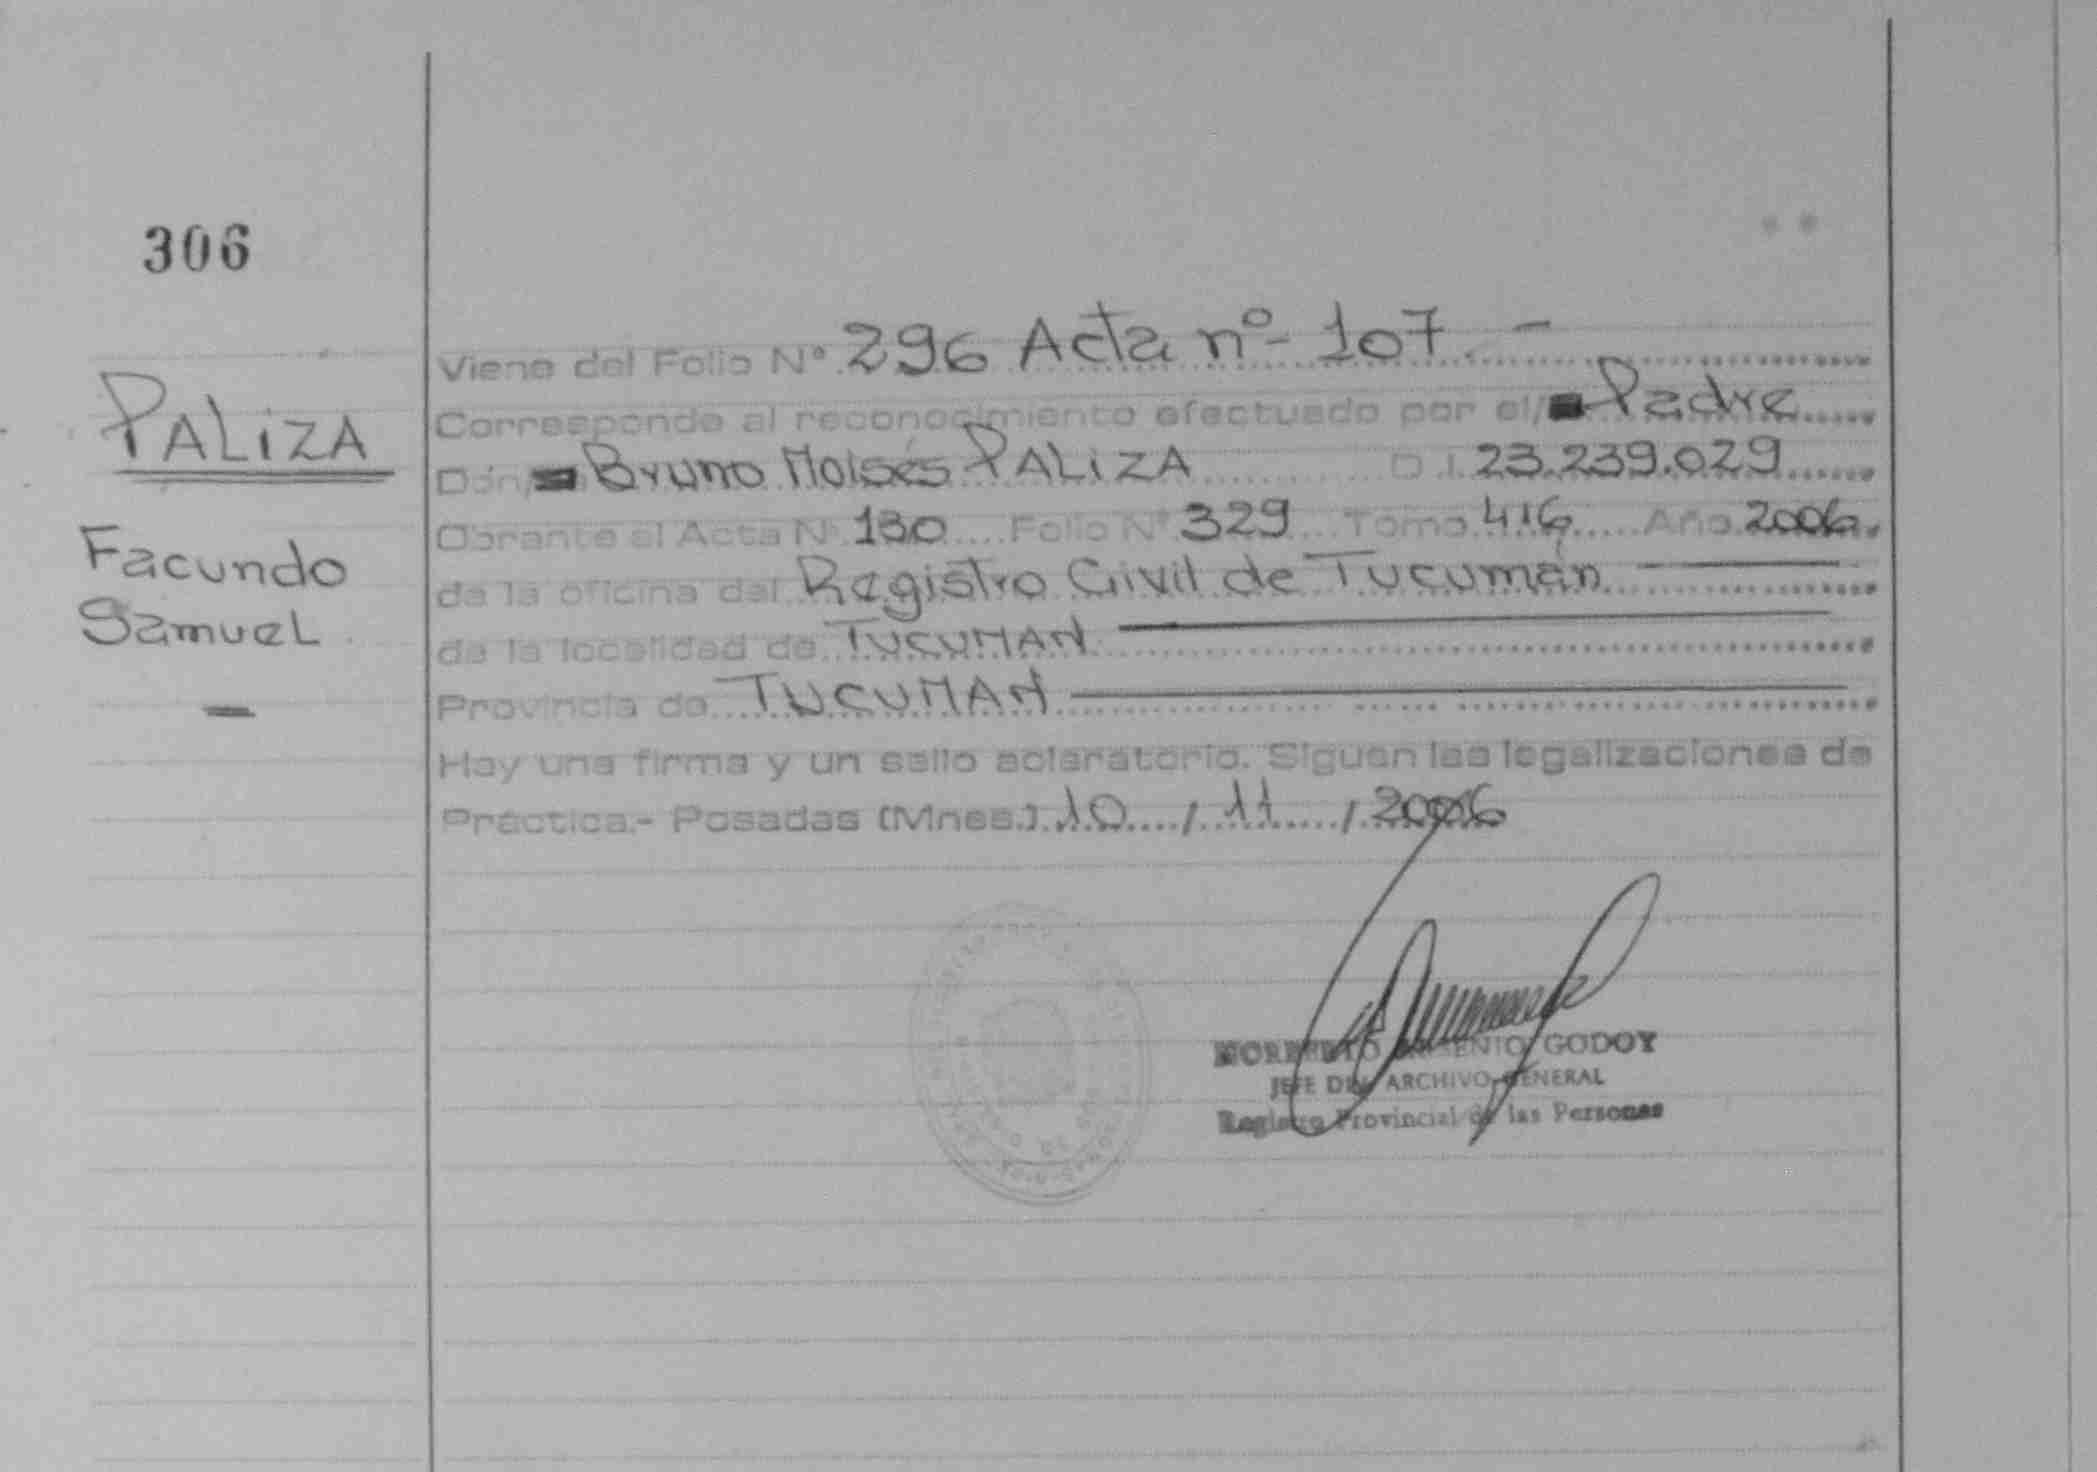 306
PALIZA
Facundo
Samuel
—
Viene del Folio Nº 296 Acta nº 107.-
Corresponde al reconocimiento efectuado por el/ Padre
Don/ Bruno Moisés PALIZA D.I. 23.239.029
Obrante al Acta Nº 130 Folio Nº 329 Tomo 416 Año 2006.
de la oficina del Registro Civil de Tucumán
de la localidad de TUCUMAN
Provincia de TUCUMAN
Hay una firma y un sello aclaratorio. Siguen las legalizaciones de
Práctica.- Posadas (Mnes.) 10 / 11 / 2006
GODOY
JEFE DEL ARCHIVO GENERAL
Registro Provincial de las Personas